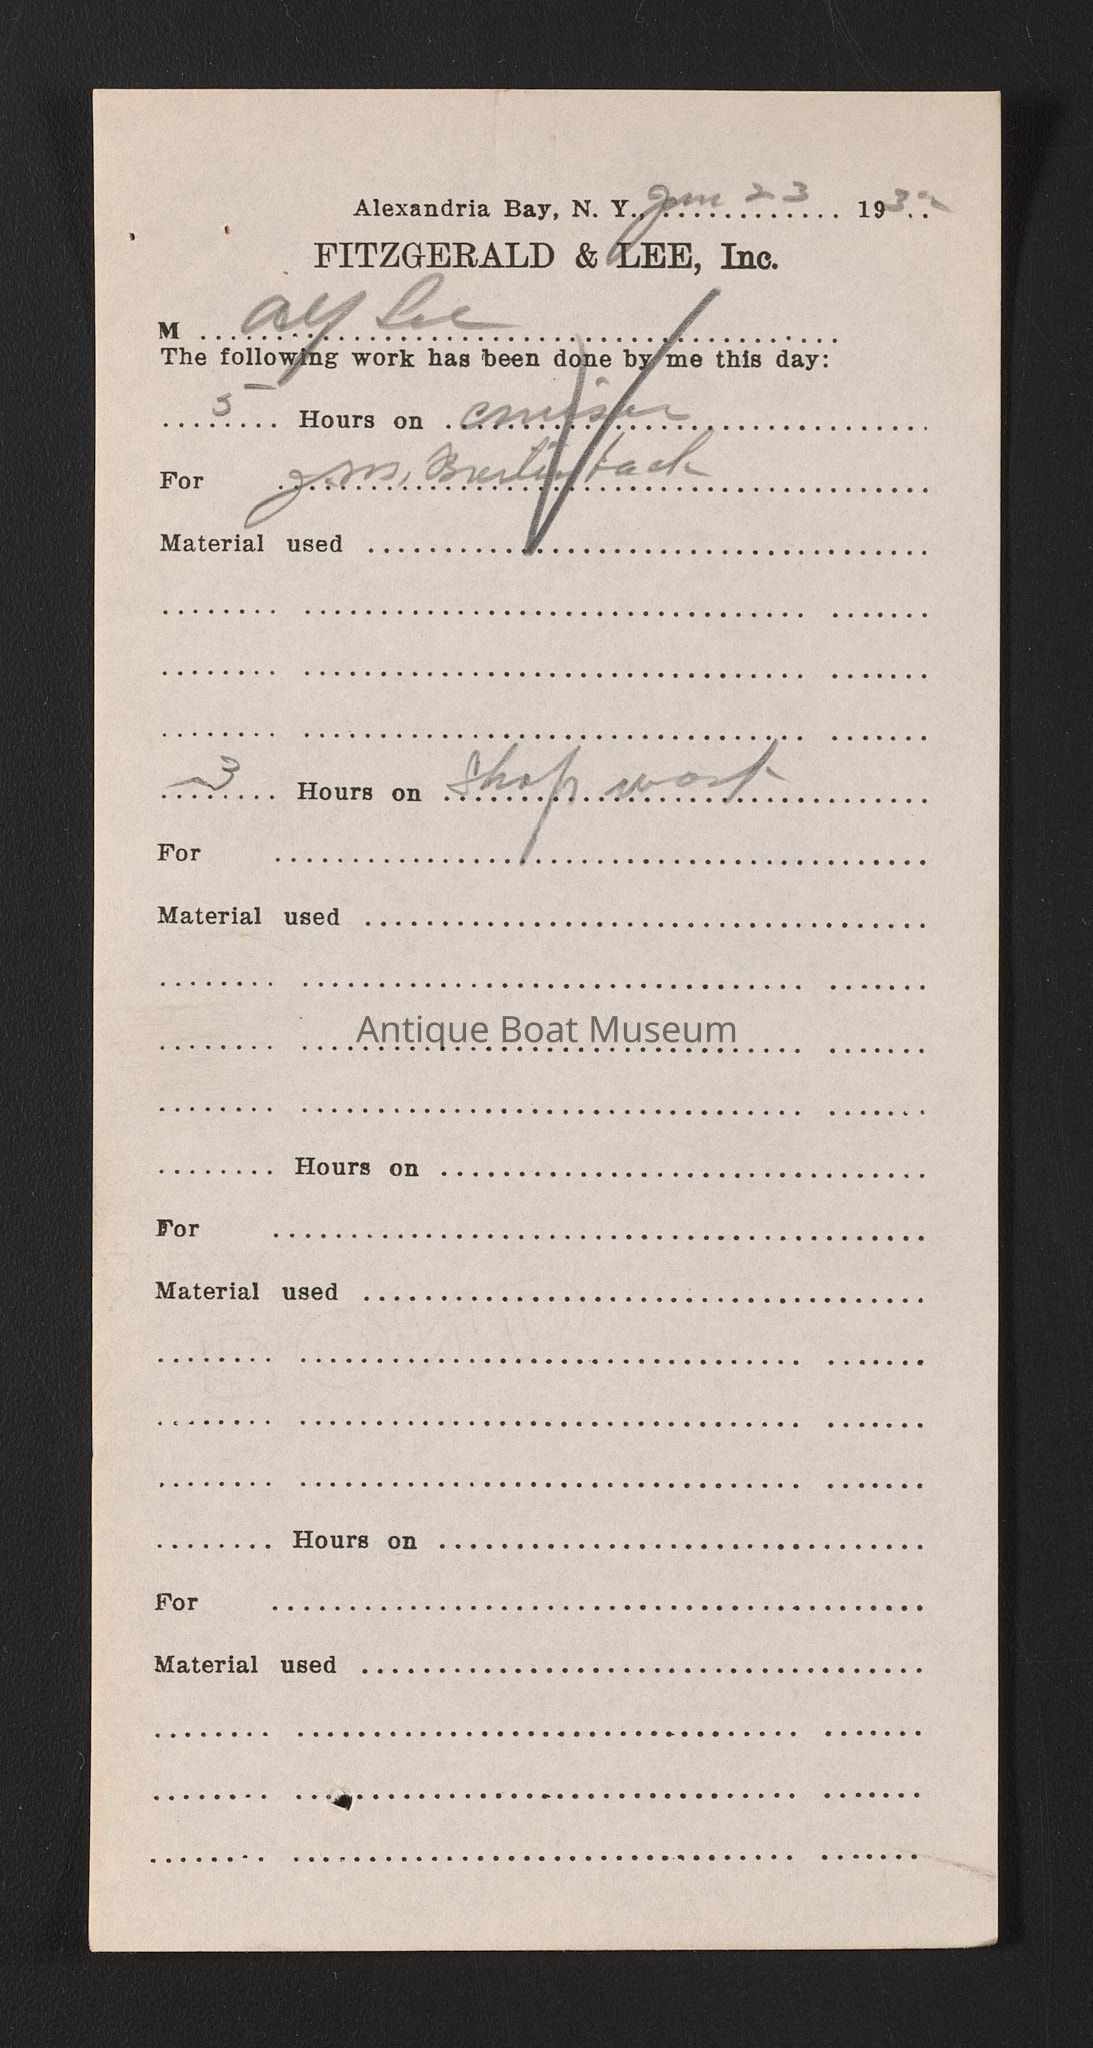 Alexandria Bay, N. Y. 23 193
FITZGERALD & LEE, Inc.
M Alf Lee
The following work has been done by me this day:
5 Hours on cruiser
For J.M.
Material used
3 Hours on Shop work
For
Material used
Antique Boat Museum
Hours on
For
Material used
Hours on
For
Material used